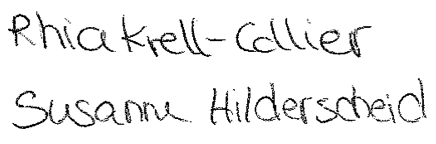 Rhia Krell-Collier
Susanne Hilderscheid